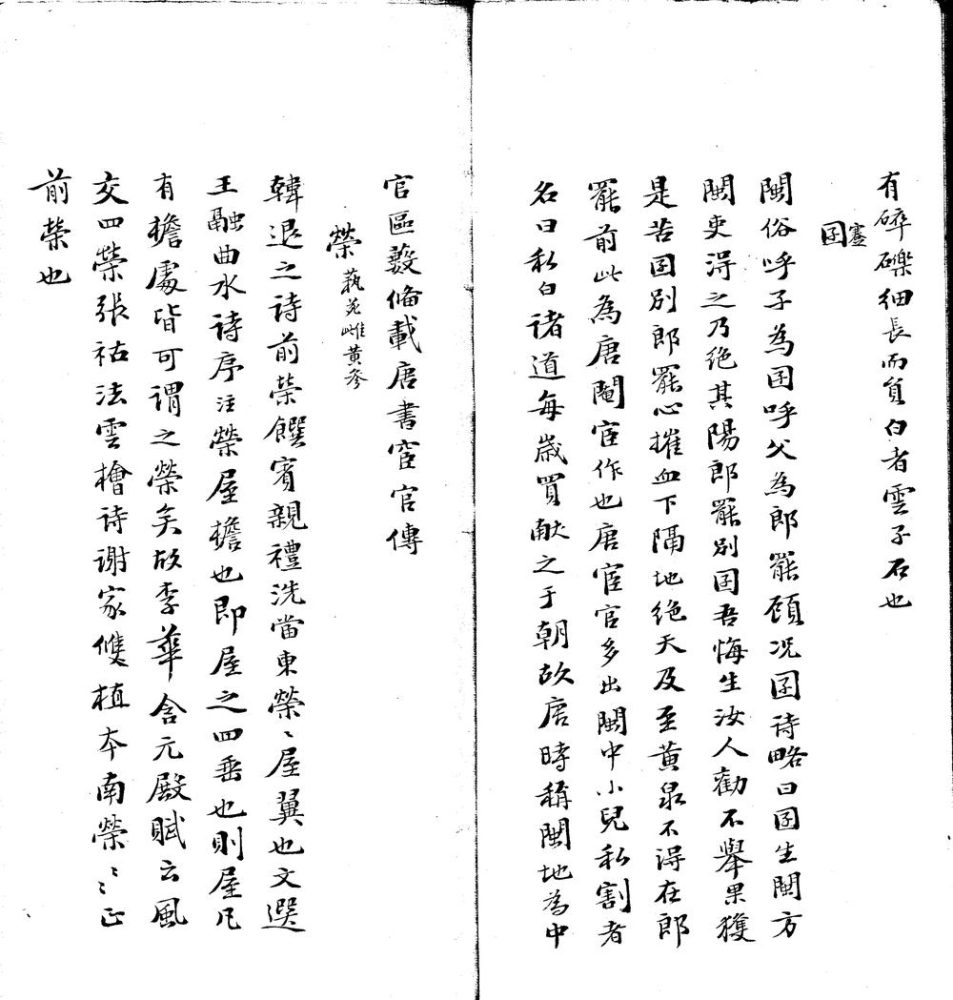 有碎礫細長而負白者雲子石也
囝蹇
閩俗呼子為囝呼父為郎罷顧况囝诗略曰囝生閩方
閩吏淂之乃绝其陽郎罷别囝吾悔生汝人勸不舉果獲
是苦囝别郎罷心摧血下隔地绝天及至黄泉不淂在郎
罷前此為唐閹宦作也唐宦官多出閩中小兒私割者
名曰私白诸道每嵗買献之于朝故唐時稱閩地為中
官區藪俻載唐書宦官傳
榮 蓺苑雌黄叅
韓退之诗前榮饌賓親禮洗當東榮〻屋翼也文選
王融曲水诗序注榮屋檐也即屋之四垂也則屋凡
有檐處皆可謂之榮矣故李華含元殿賦云風
交四榮張祜法雲檜诗谢家雙植本南榮〻〻正
前榮也